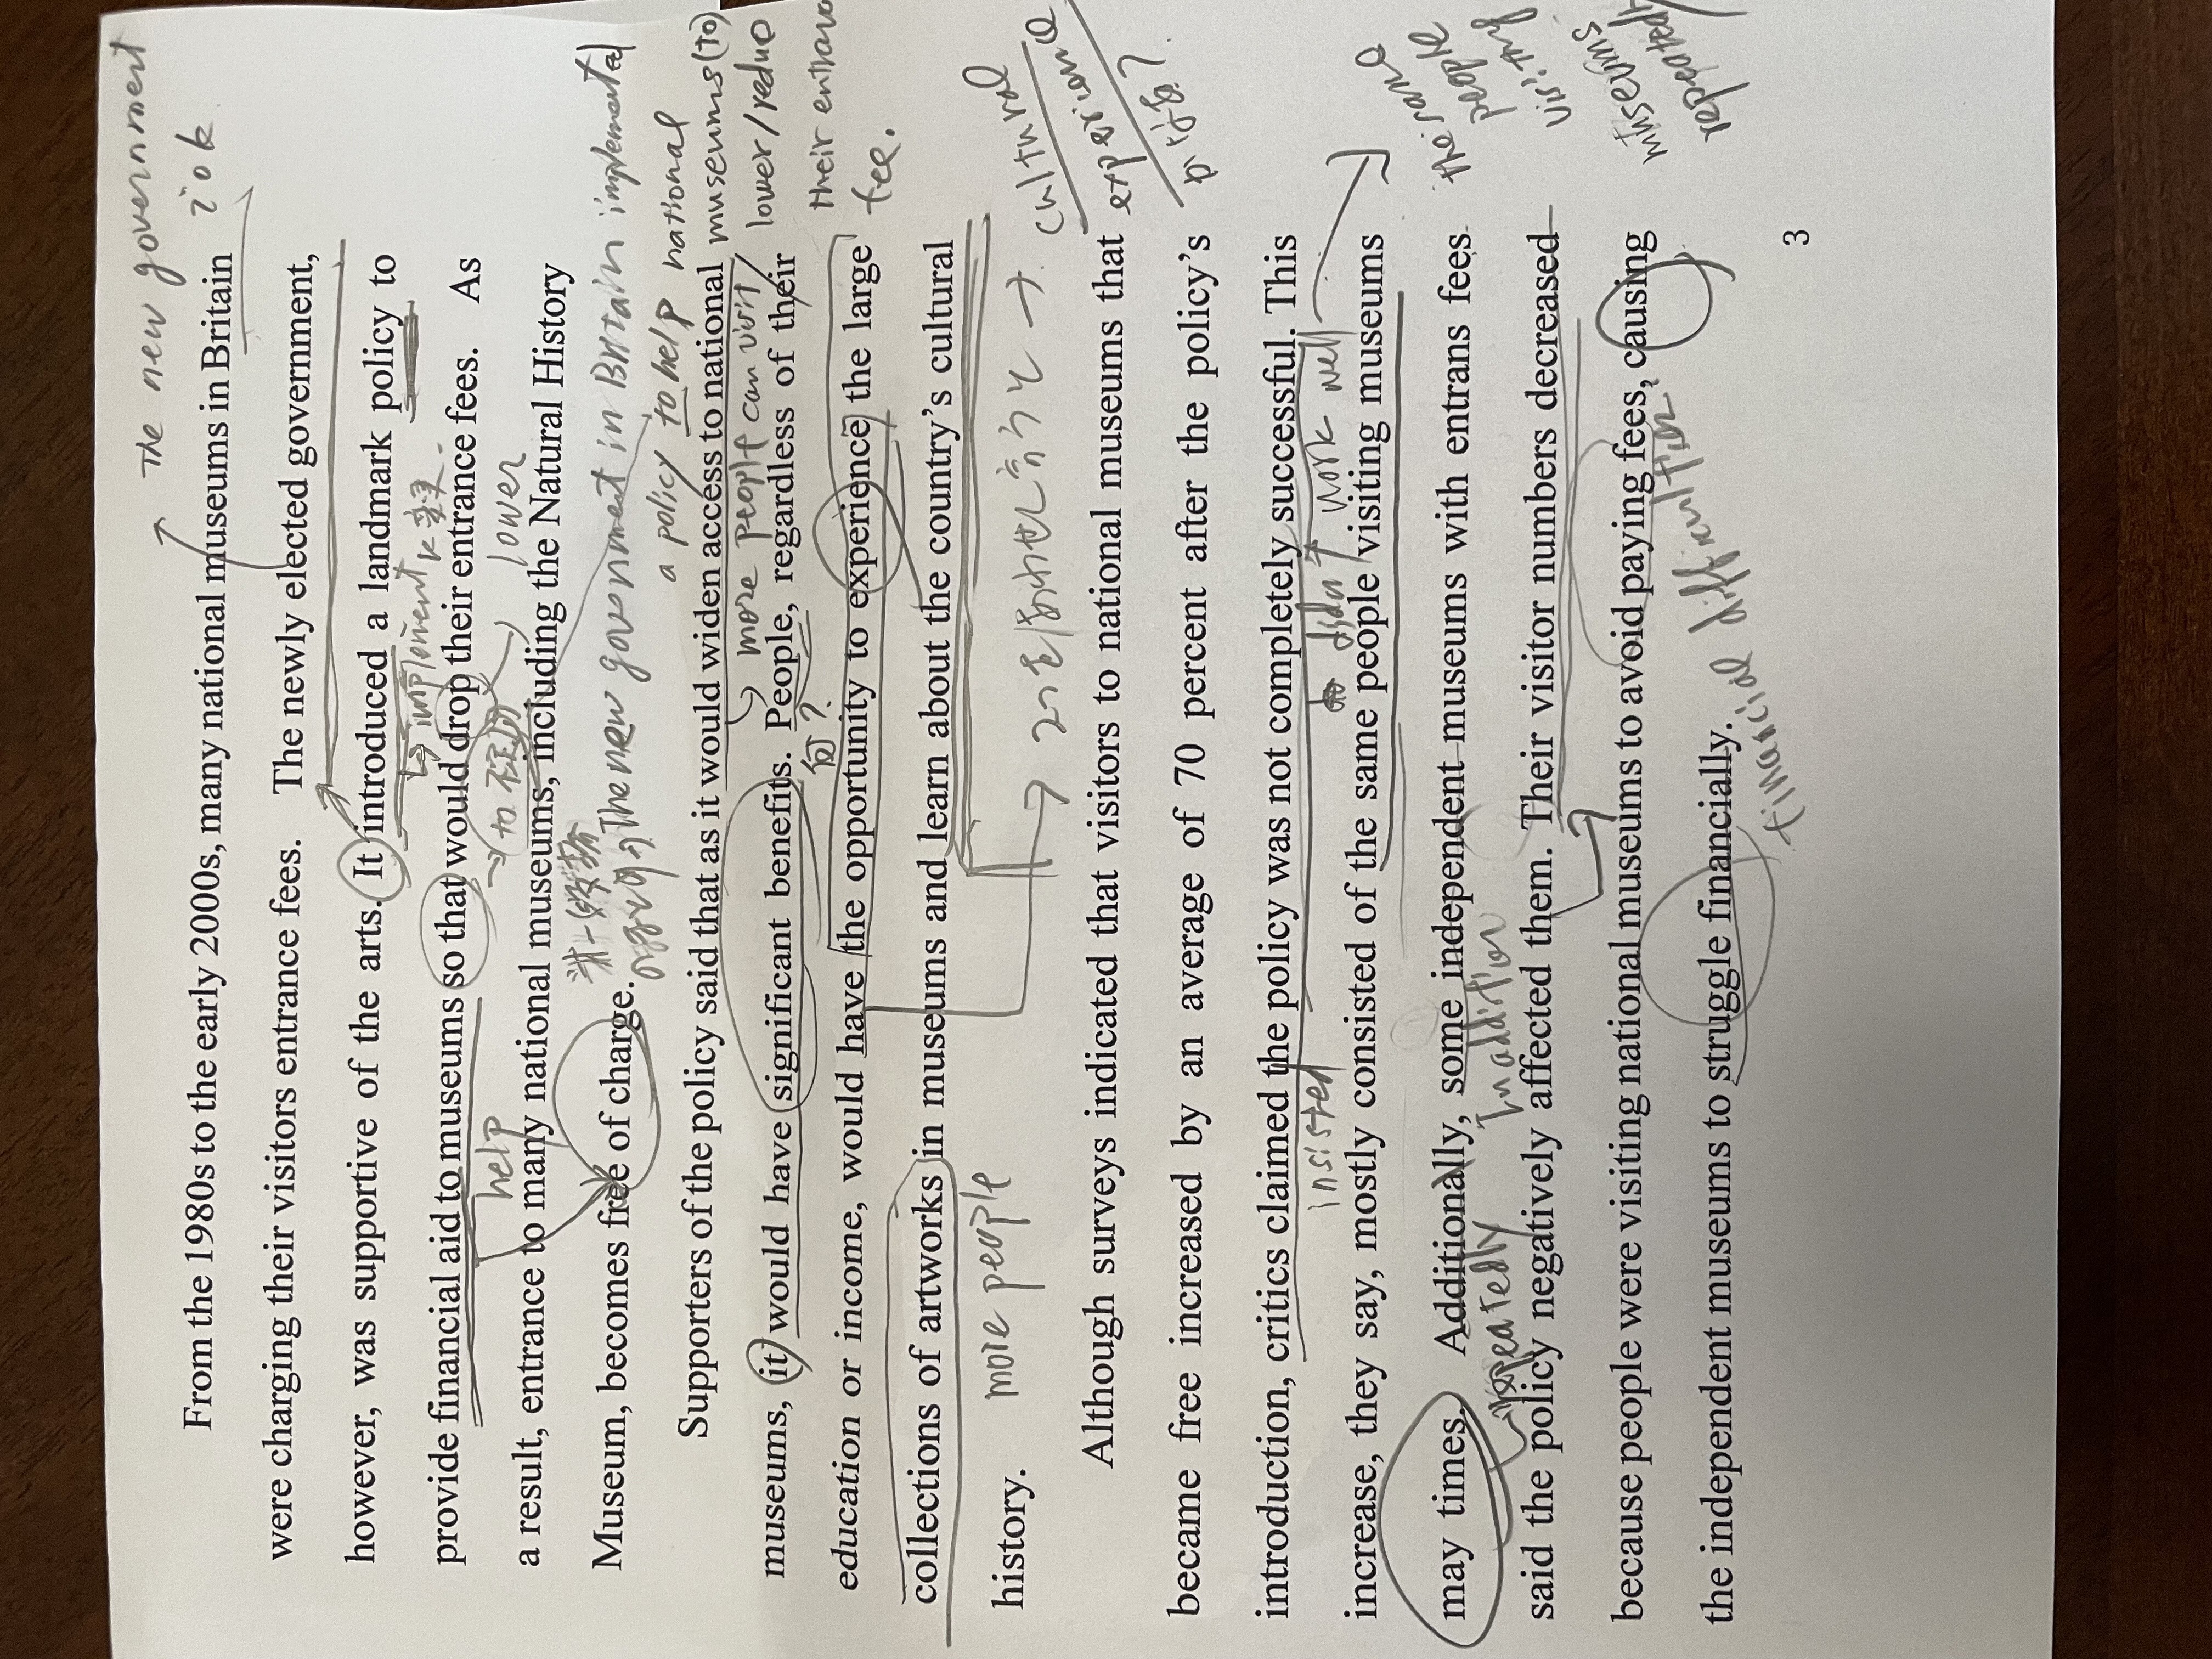 The new government
in Britain implemented
From the 1980s to the early 2000s, many national museums in Britain
were charging their visitors entrance fees. The newly elected government,
however, was supportive of the arts. It introduced a landmark policy to
implement
provide financial aid to museums so that would drop their entrance fees. As
help
lower
a result, entrance to many national museums, including the Natural History
Museum, becomes free of charge. The new government in Britain implemented
a policy to help national
museums (to)
lower/reduce
their entrance
fee.
Supporters of the policy said that as it would widen access to national
more people can visit
museums, it would have significant benefits. People, regardless of their
何?
education or income, would have the opportunity to experience the large
collections of artworks in museums and learn about the country's cultural
history.
more people
2つを合わせて言うと → cultural
experience
Although surveys indicated that visitors to national museums that
became free increased by an average of 70 percent after the policy's
introduction, critics claimed the policy was not completely successful. This
insisted
didn't work well
increase, they say, mostly consisted of the same people visiting museums
the same
people
visiting
museums
repeatedly
may times. Additionally, some independent museums with entrans fees
repeatedly
In addition
said the policy negatively affected them. Their visitor numbers decreased
because people were visiting national museums to avoid paying fees, causing
the independent museums to struggle financially.
financial
3